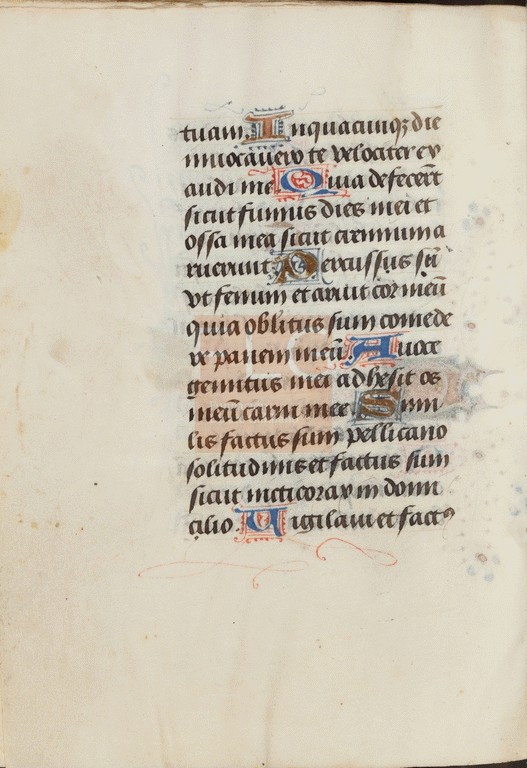 tuam. In quacunqꝫ die
inuocauero te velociter ex
audi me Quia defecert̄
sicut fumus dies mei et
ossa mea sicut cremium a
ruerunt. Percussus sū
vt fenum et aruit cor meū
quia oblitus sum comede
re panem meū A uoce
gemitus mei adhesit os
meū carni mee Simi
lis factus sum pellicano
solitudinis et factus sum
sicut nicticorax in domi
cilio. Uigilaui et factꝰ